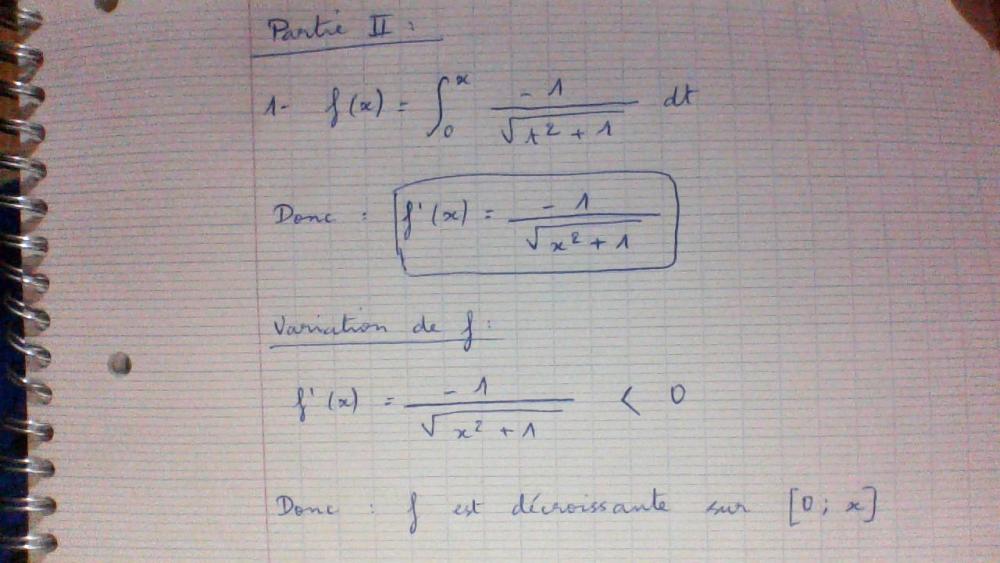 Partie II :
1- f(x) = ∫₀ˣ -1/√(t² + 1) dt
Donc : f'(x) = -1/√(x² + 1)
Variation de f :
f'(x) = -1/√(x² + 1) < 0
Donc : f est décroissante sur [0 ; x]